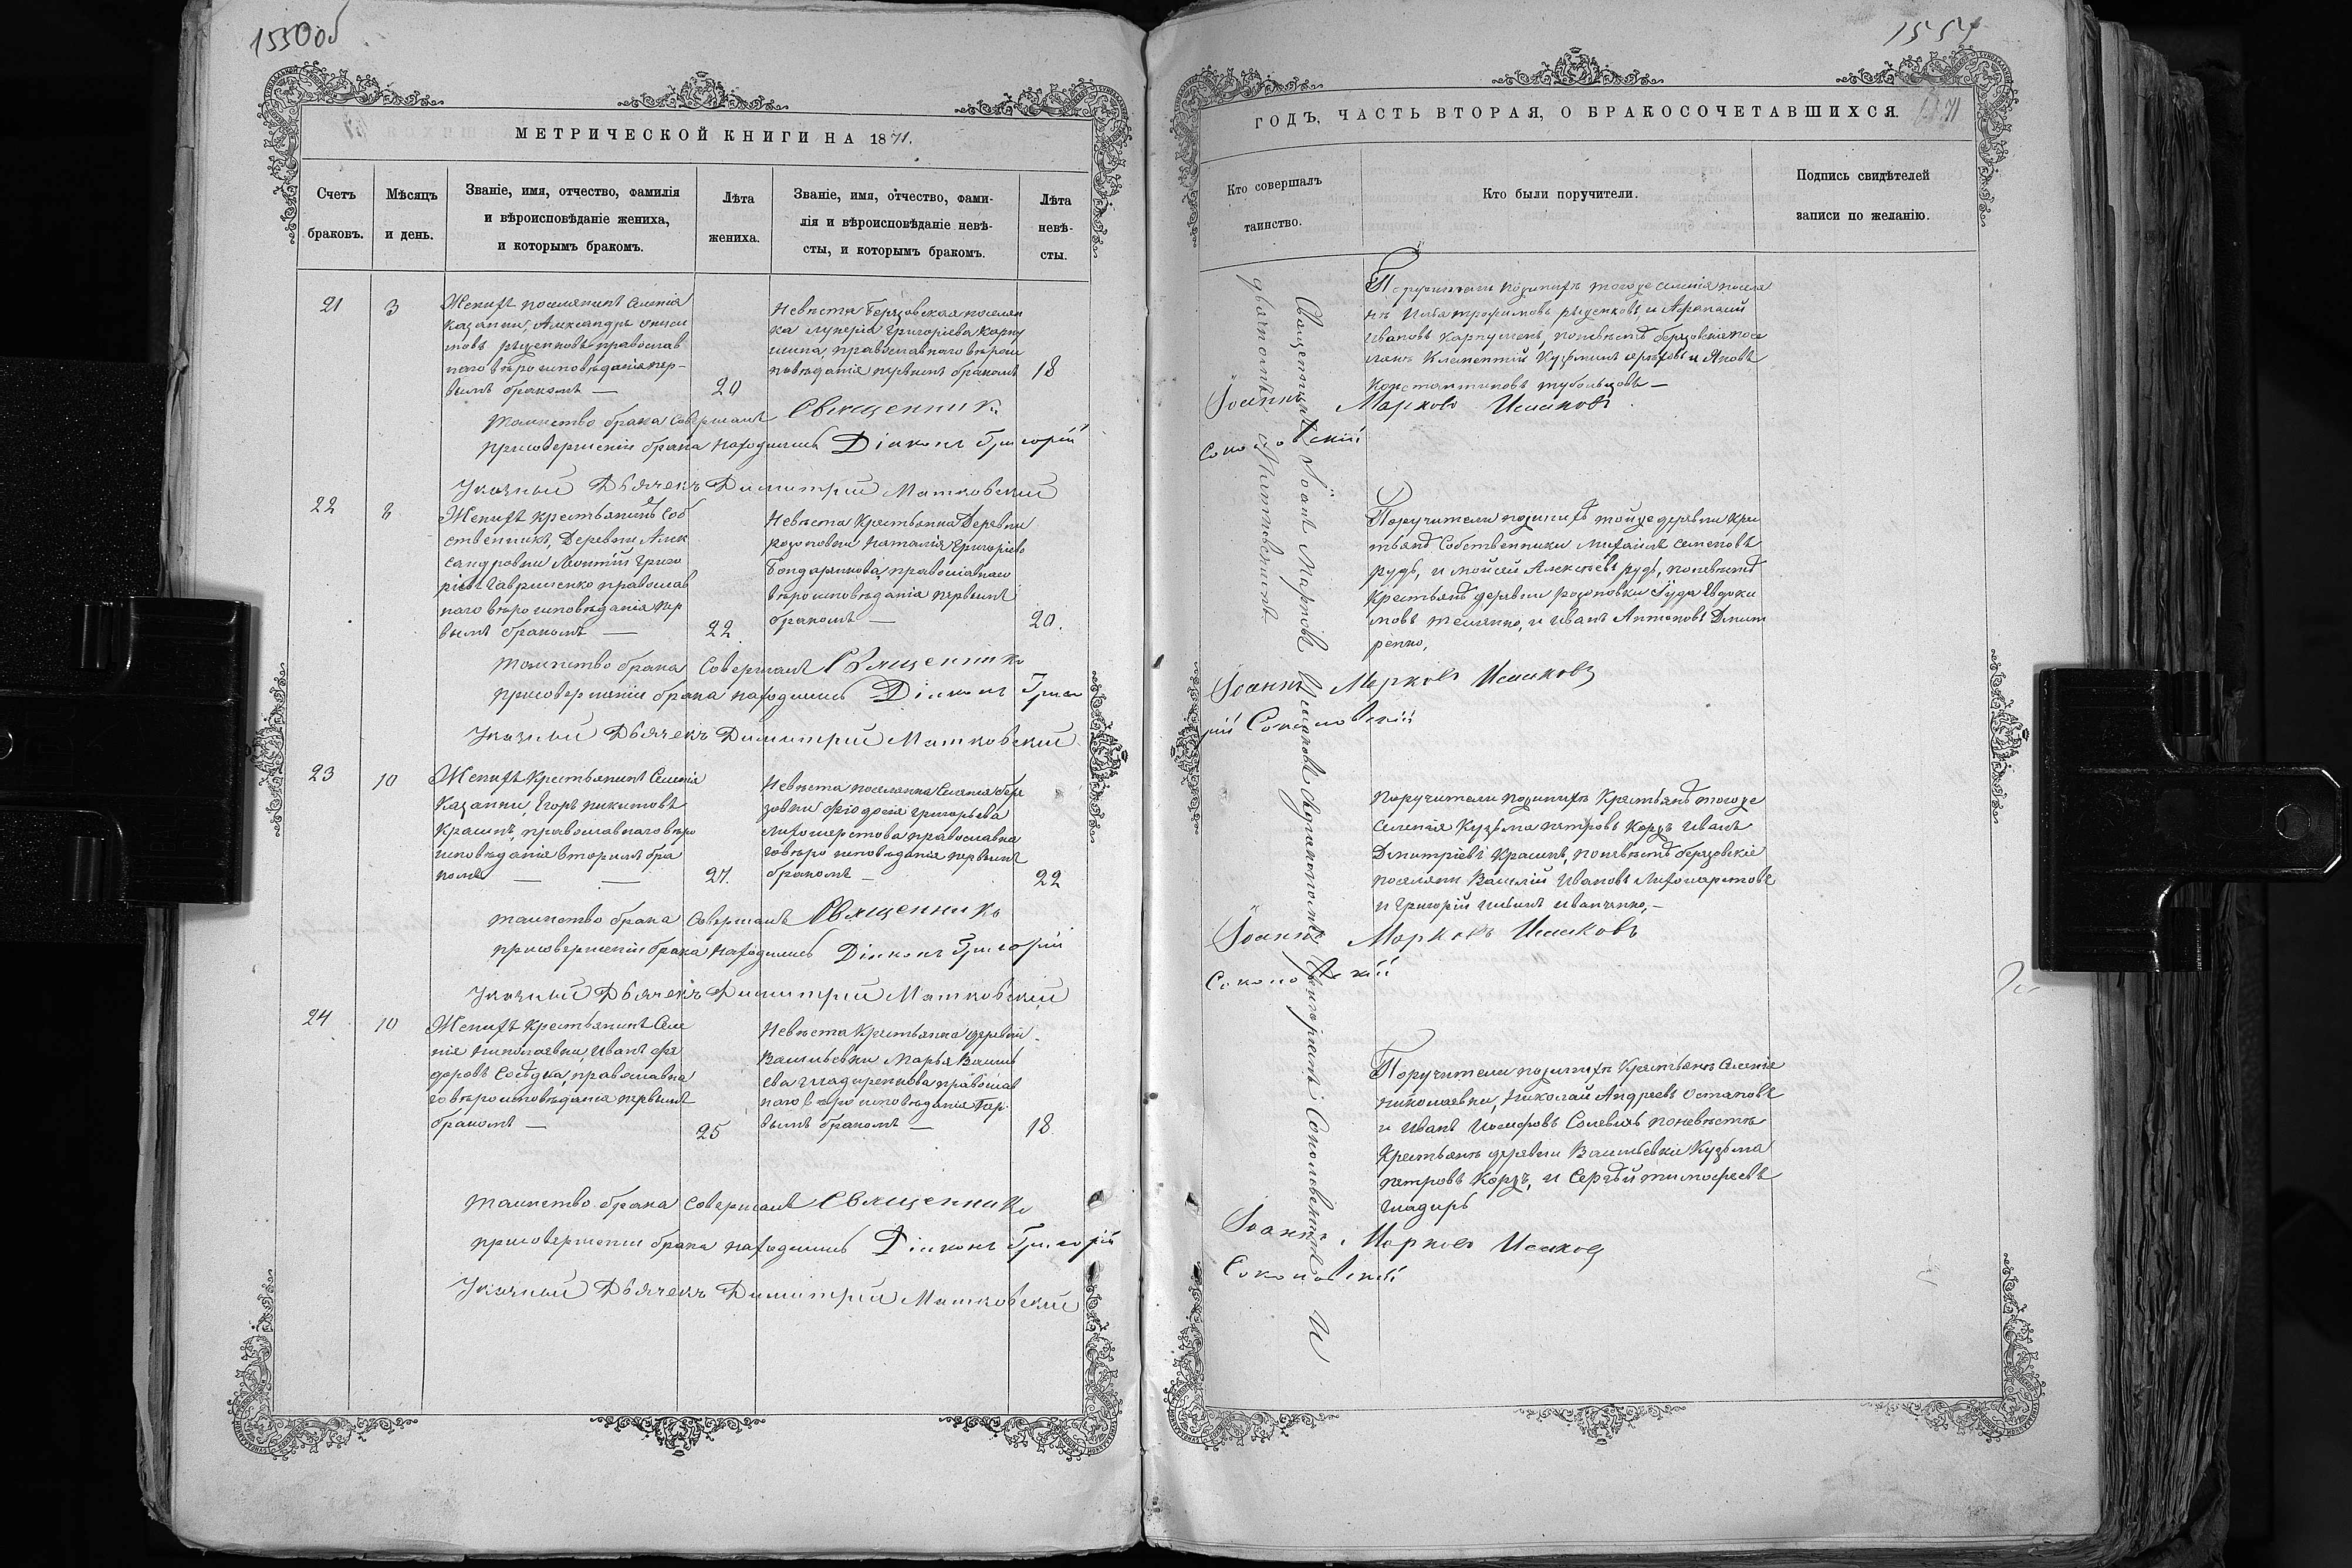 1550об
МЕТРИЧЕСКОЙ КНИГИ НА 1871.
Счетъ браковъ.
Мѣсяцъ и день.
Званіе, имя, отчество, фамилія
и вѣроисповѣданіе жениха,
и которымъ бракомъ.
Лѣта жениха.
Званіе, имя, отчество, фами-
лія и вѣроисповѣданіе невѣ-
сты, и которымъ бракомъ.
Лѣта невѣ-
сты.
21
3
Женихъ поселянинъ Селенія
Казанки, Александръ
православ
наго вѣроисповѣданія пер-
вымъ бракомъ —
20
Невѣста Берзовская поселян
ка Григоріева Карпу
шина, православнаго вѣроис
повѣданія первымъ бракомъ
18
Таинство брака совершалъ Священникъ
присовершеніи брака находились Діаконъ Григорій
Указный Дьячекъ Димитрій Матковскій
22
8
Женихъ крестьянинъ Соб
ственникъ, Деревни Алек
сандровки Леонтій Григо
ріевъ Гавриленко православ
наго вѣроисповѣданія пер
вымъ бракомъ —
22.
Невѣста Крестьянка Деревни
Наталія Григоріева
Бондаренкова, православнаго
вѣроисповѣданія первымъ
бракомъ —
20.
Таинство брака Совершалъ Священникъ
присовершеніи брака находились Діаконъ Григо
Указный Дьячекъ Димитрій Матковскій
23
10
Женихъ Крестьянинъ Селенія
Казанки, Егоръ Никитовъ
Крамъ, православнаго вѣро
исповѣданія вторымъ бра
комъ — —
27.
Невѣста поселянка Селенія Бер
зовки Феодосія Григорьева
Лихошерстова православна
го вѣроисповѣданія первымъ
бракомъ —
22
таинство брака Совершалъ Священникъ
присовершеніи брака находились Діаконъ Григорій
Указный Дьячекъ Димитрій Матковскій
24
10
Женихъ Крестьянинъ Селе
нія Николаевки, Иванъ Фе
доровъ православна
го вѣроисповѣданія первымъ
бракомъ —
25
Невѣста Крестьянка деревни
Васильевки Марья Василь
ева Шадиренкова православ
наго вѣроисповѣданія Пер
вымъ бракомъ —
18
таинство брака Совершалъ Священникъ
присовершеніи брака находились Діаконъ Григорій
Указный Дьячекъ Димитрій Матковскій
ГОДЪ, ЧАСТЬ ВТОРАЯ, О БРАКОСОЧЕТАВШИХСЯ.
Кто совершалъ
таинство.
Кто были поручители.
Подпись свидѣтелей
записи по желанію.
Поручители пожениху тогоже селенія посяля
Трофимовъ и Афанасій
Ивановъ Карпушенъ, поневѣстѣ берзовскіе посе
ляне Климентій Кузьминъ и Яковъ
Константиновъ —
Іоаннъ Марковъ Исиковъ
Соколовскій
Поручители пожениху тойже деревни кре
тьяне Собственники Михаилъ Семеновъ
Рудь, и Мойсей Алексѣевъ Рудь, поневѣстѣ
Крестьяне деревни Іуда Евдоки
мовъ и Иванъ Антоновъ Дмит
ренко,
Іоаннъ Марковъ Исиковъ
рій Соколовскій
Поручители пожениху Крестьяне тогоже
Селенія Кузьма Петровъ Коржъ Иванъ
Дмитріевъ Крамъ, поневѣстѣ берзовскіе
поселяни Василій Ивановъ Лихошерстовъ
и Григорій Иванченко, —
Іоаннъ Марковъ Исиковъ
Соколовскій
Поручители пожениху Крестьяне Селенія
Николаевки, Николай Андреевъ Остаповъ
и Иванъ Іосифовъ поневѣстѣ
Крестьяне деревни Васильевки Кузьма
Петровъ Коржъ, и Сергѣй Тимофеевъ
Шадиръ
Іоаннъ Марковъ Исиков
Соколовскій
Священникъ Іоанъ Марковъ Исиковъ Діакономъ Григоріемъ Соколовскимъ И
дьячкомъ Матковскимъ.